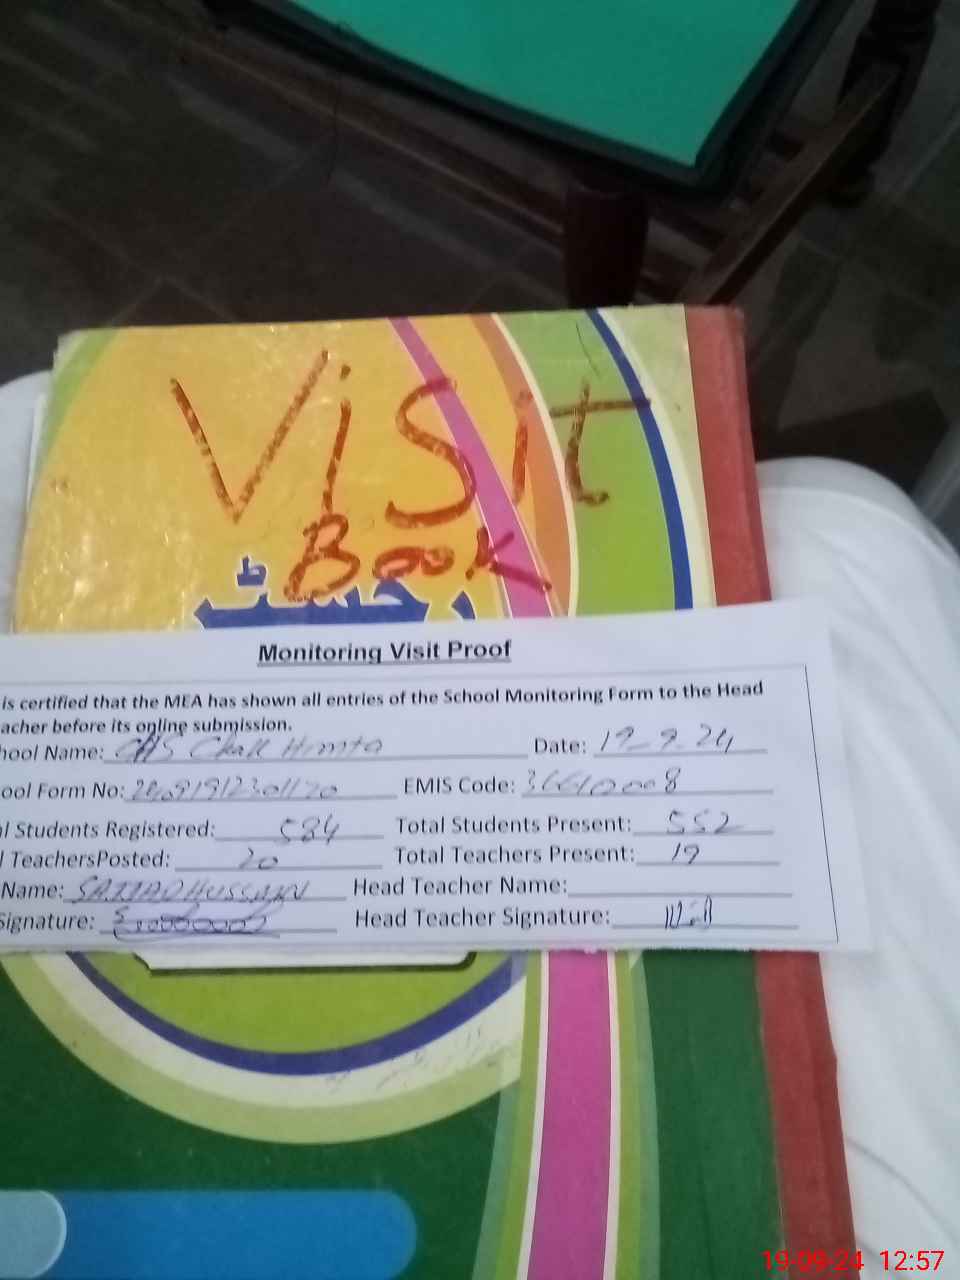 Visit
Book
رجسٹر
Monitoring Visit Proof
is certified that the MEA has shown all entries of the School Monitoring Form to the Head
acher before its online submission.
hool Name: GHS Chak Himta Date: 19-9-24
ool Form No: EMIS Code: 36610008
l Students Registered: 584 Total Students Present: 552
l TeachersPosted: 20 Total Teachers Present: 19
Name: SAJJAD HUSSAIN Head Teacher Name:
Signature: Head Teacher Signature:
19-09-24 12:57